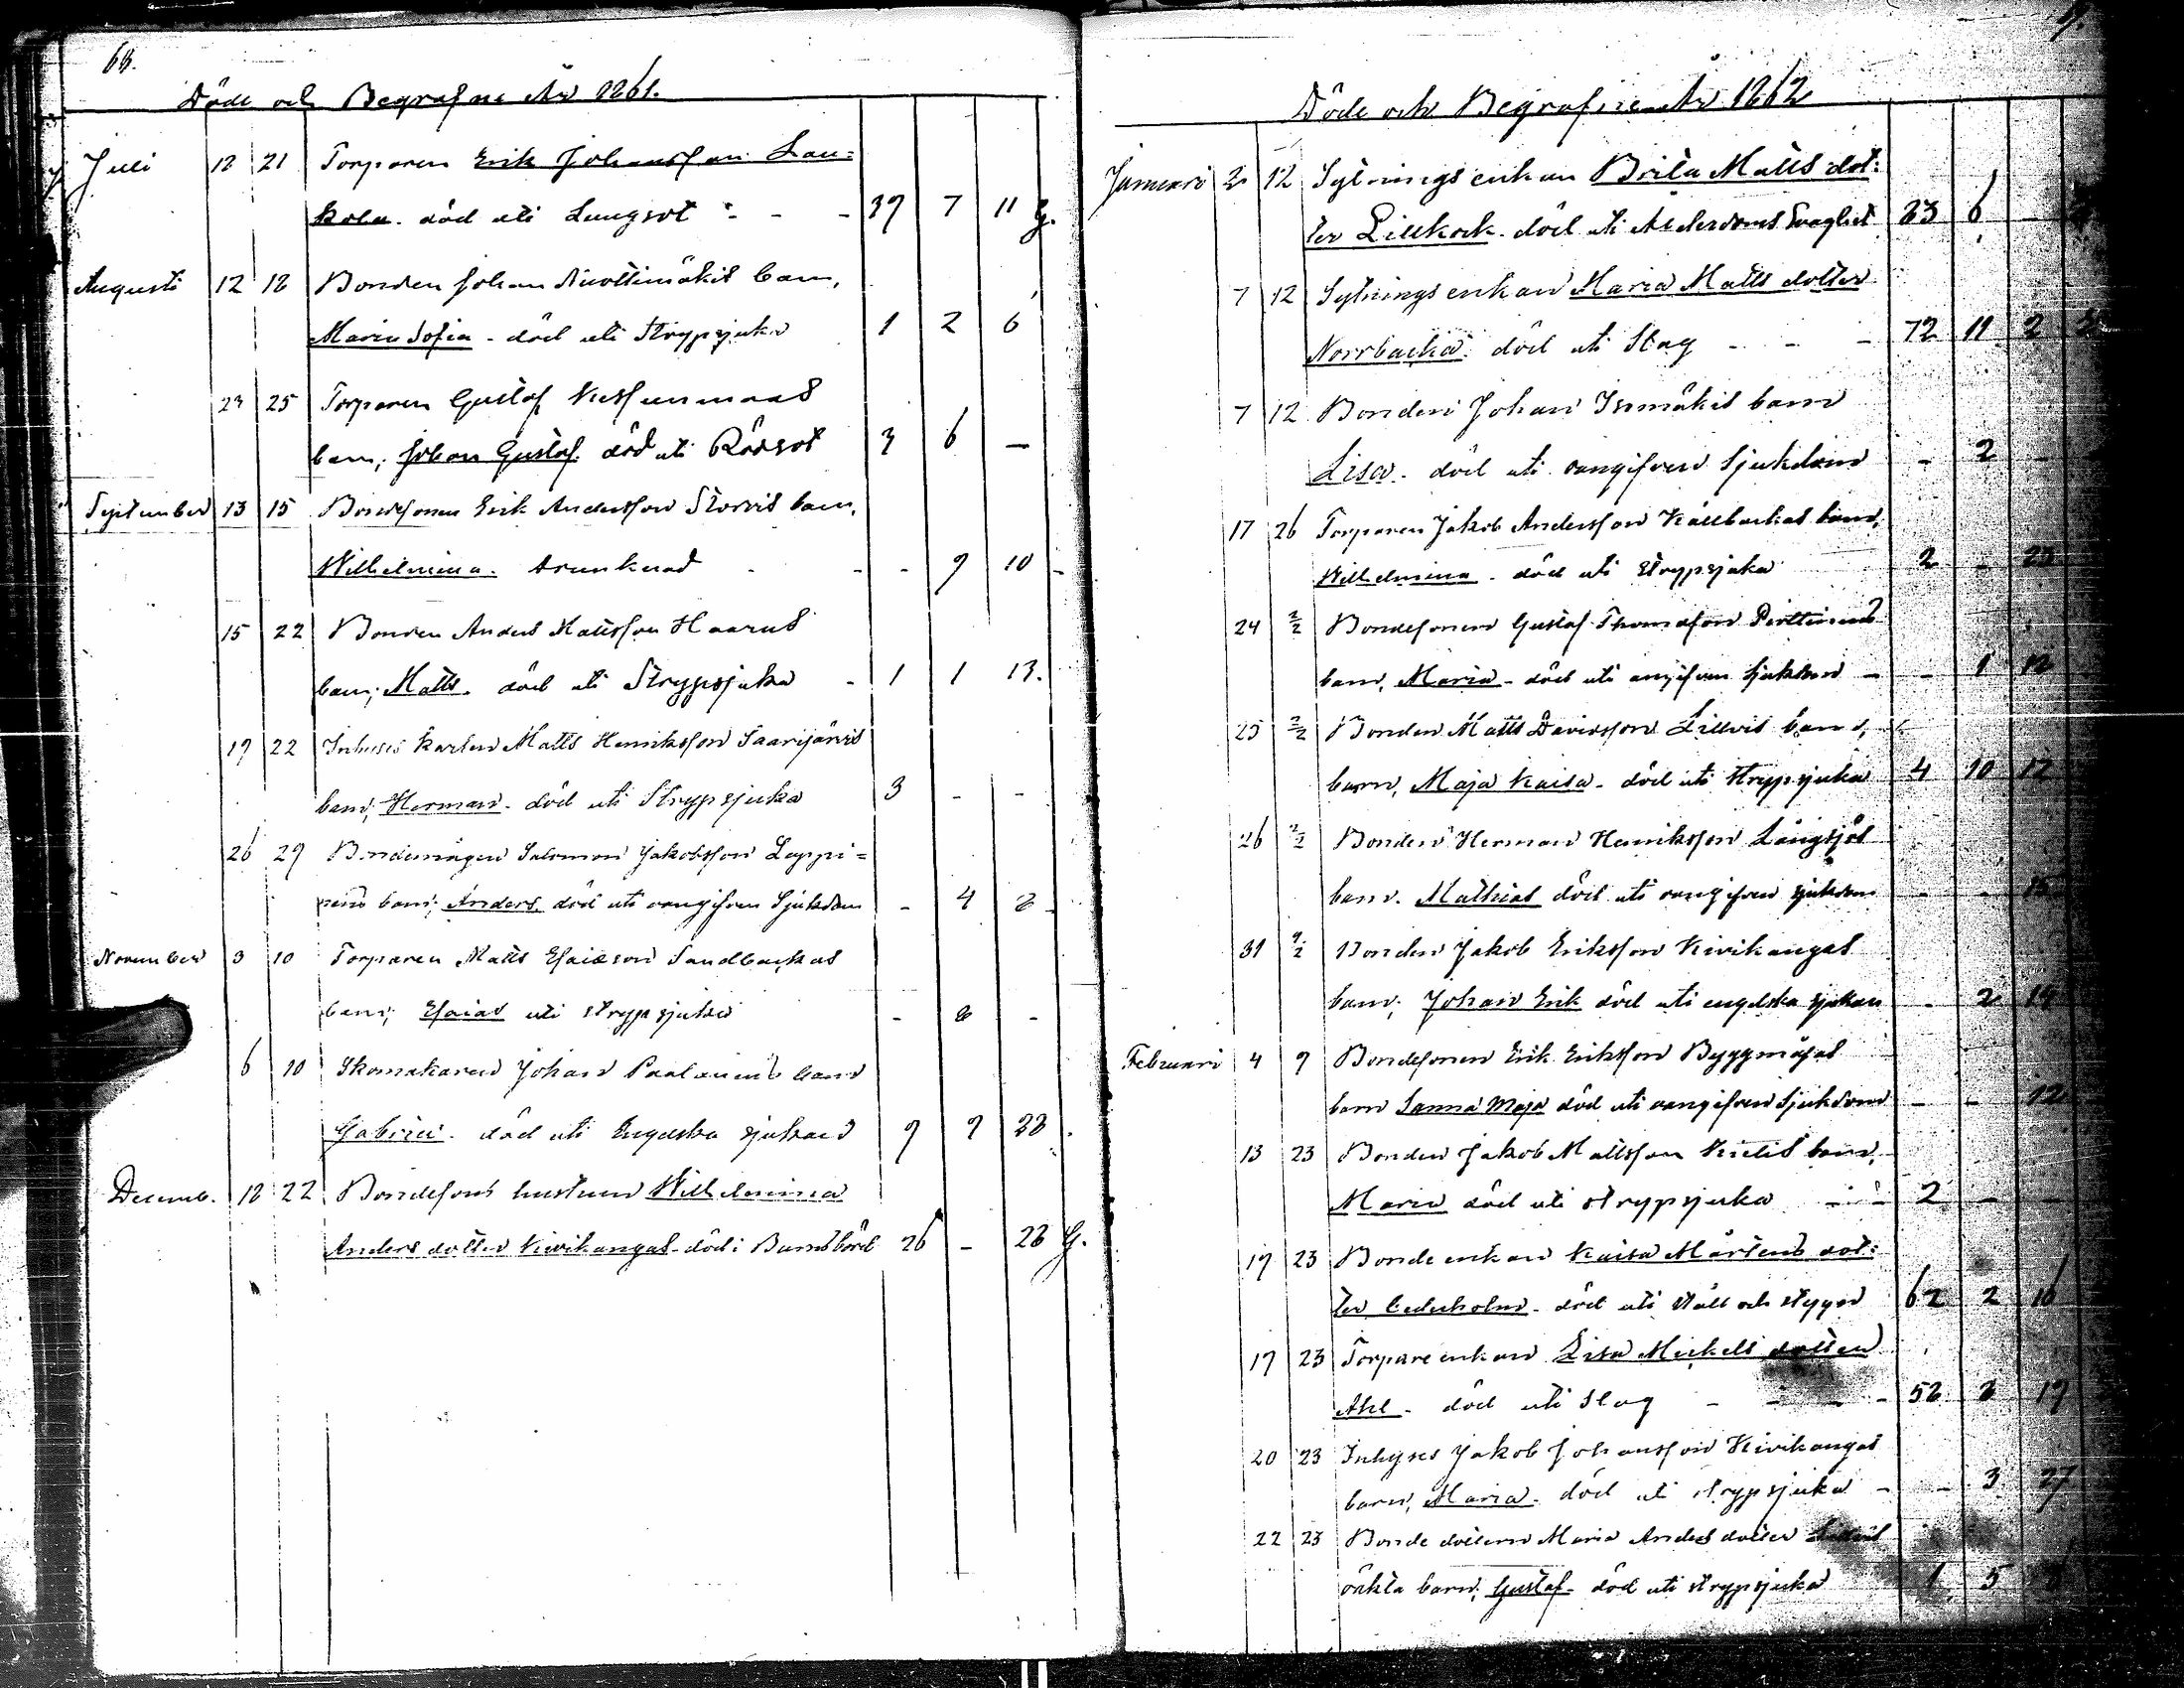 68.
Döde och Begrafne År 1861.
Juli 18 21 Torparen Erik Johansson Lau=
kola. död uti Lungsot - - - 37 7 11 G.
Augusti 12 18 Bonden Johan barn,
Maria Sofia - död uti Strypsjuka 1 2 6
23 25 Torparen Gustaf
barn, Johan Gustaf död uti Rödsot 3 6 -
September 13 15 Bondesonen Erik Andersson Storvis barn,
Wilhelmina. drunknad - - 9 10
15 22 Bonden Anders Mattsson Haarus
barn, Matts. död uti Strypsjuka - 1 1 13.
19 22 Inhyses karlen Matts Henriksson Saarijärvis
barn, Herman. död uti Strypsjuka 3 - -
26 29 Salomon Jakobsson Leppi=
barn, Anders död uti oangifven Sjukdom - 4 8
November 3 10 Torparen Matts Esaiesson Sandbackas
barn, Esaias uti strypsjuka - 8 -
6 10 Skomakaren Johan Paalanens barn
Gabriel. död uti Engelska sjukan 9 9 28
Decemb. 18 22 Bondesons hustrun Wilhelmina
Anders dotter Kivikangas död i Barnsbörd 26 - 28 G.
Döde och Begrafne År 1862
Januari 2 12 Sytningsenkan Brita Matts dot=
ter Lillkock. död uti Ålderdoms Svaghet 83 6 -
7 12 Sytningsenkan Maria Matts dotter
Norrbacka död uti Slag - - - 72 11 2
7 12 Bonden Johan Isomäkis barn
Lisa. död uti oangifven Sjukdom - 2 -
17 26 Torparen Jakob Andersson Källbackas barn,
Wilhelmina - död uti strypsjuka 2 - 23
24 2/2 Bondesonen Gustaf Thomasson
barn, Maria - död uti angifven Sjukdom - - 1 12
25 2/2 Bonden Matts Davidsson Lillvis barn,
barn, Maja Kaisa - död uti Strypsjuka 4 10 17
26 2/2 Bonden Herman Henriksson Långsjös
barn. Mathias död uti oangifven sjukdom - - 15
31 9/2 Bonden Jakob Eriksson Kivikangas
barn, Johan Erik död uti engelska sjukan - 2 14
Februari 4 9 Bondesonen Erik Eriksson Byggmäsas
barn Sanna Maja död uti oangifven Sjukdom - - 12
13 23 Bonden Jakob Mattsson barn,
Maria död uti strypsjuka - - 2 - -
17 23 Bonde enkan Kaisa Mårtens dot=
ter Cederholm - död uti Håll och Stygn 62 2 16
17 23 Torpare enkan Lisa Mickels dotter
Ahl - död uti slag - - - - 58 3 19
20 23 Inhyses Jakob Johansson Kivikangas
barn, Maria. död uti strypsjuka - - 3 27
22 23 Bonde dottern Maria Anders dotter
oäkta barn, Gustaf - död uti strypsjuka 1 5